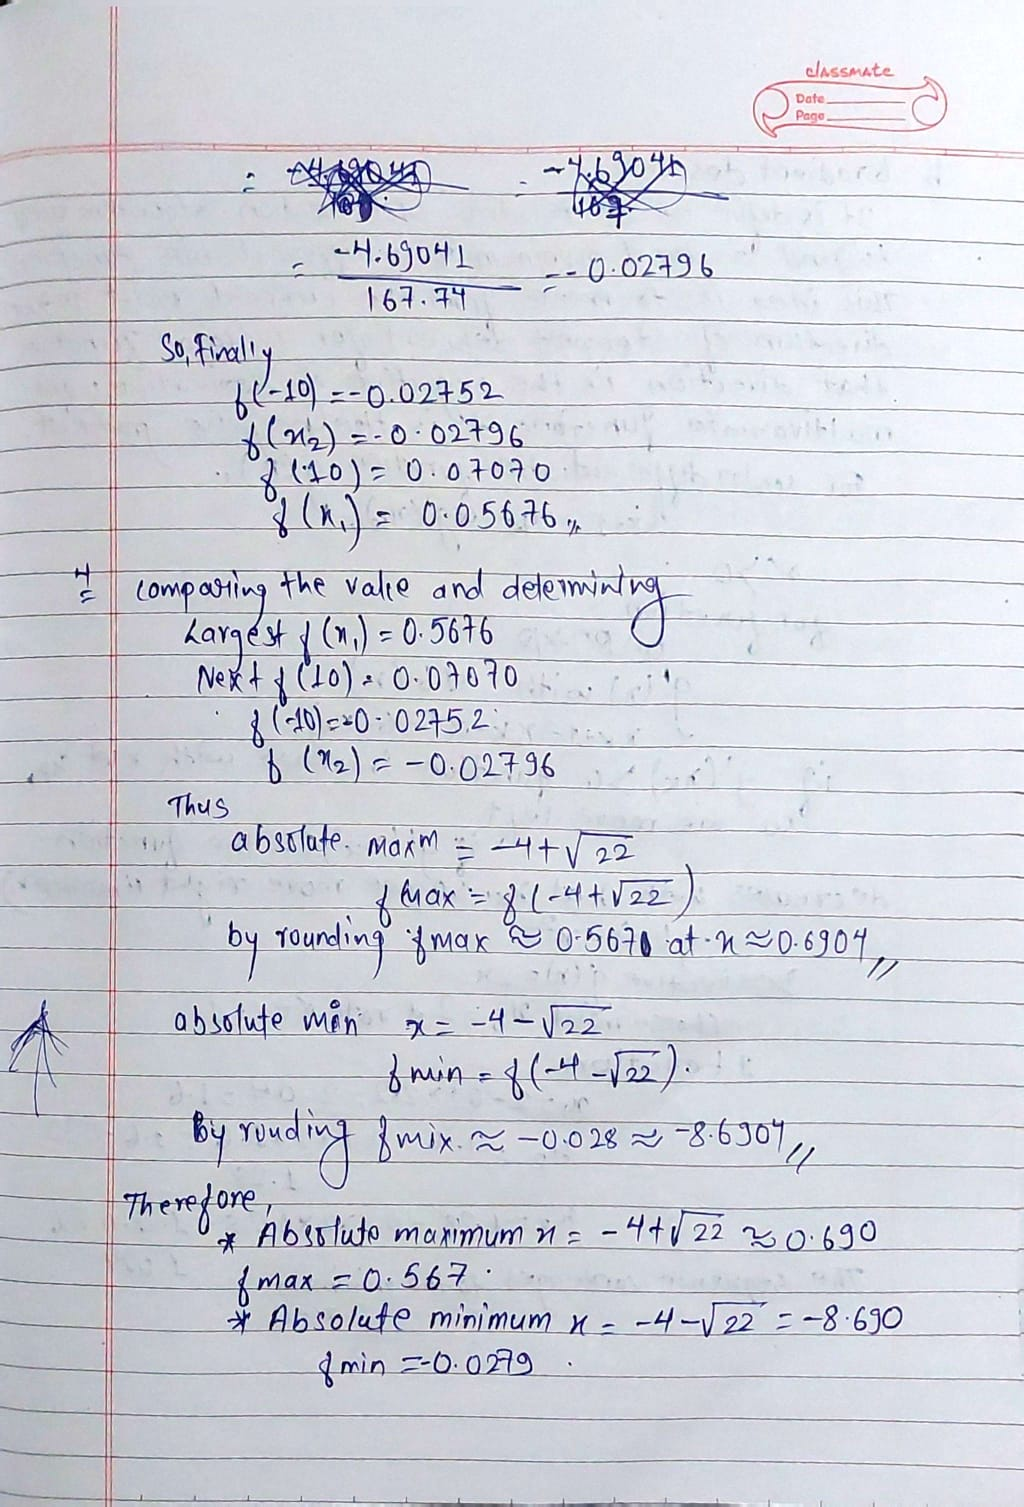 classmate
Date
Page
= -4.69041 / 167.74 = -0.02796
So, Finally
f(-10) = -0.02752
f(x₂) = -0.02796
f(10) = 0.07070
f(x₁) = 0.05676 //
4 = comparing the value and determining
Largest f(x₁) = 0.5676
Next f(10) = 0.07070
f(-10) = -0.02752
f(x₂) = -0.02796
Thus
absolute. maxm = -4+√22
f max = f(-4+√22)
by rounding fmax ≈ 0.567 at x ≈ 0.6904 //
absolute min x = -4-√22
f min = f(-4-√22).
By rouding fmix. ≈ -0.028 ≈ -8.6904 //
Therefore,
* Absolute maximum x = -4+√22 ≈ 0.690
f max = 0.567.
* Absolute minimum x = -4-√22 = -8.690
f min = -0.0279.